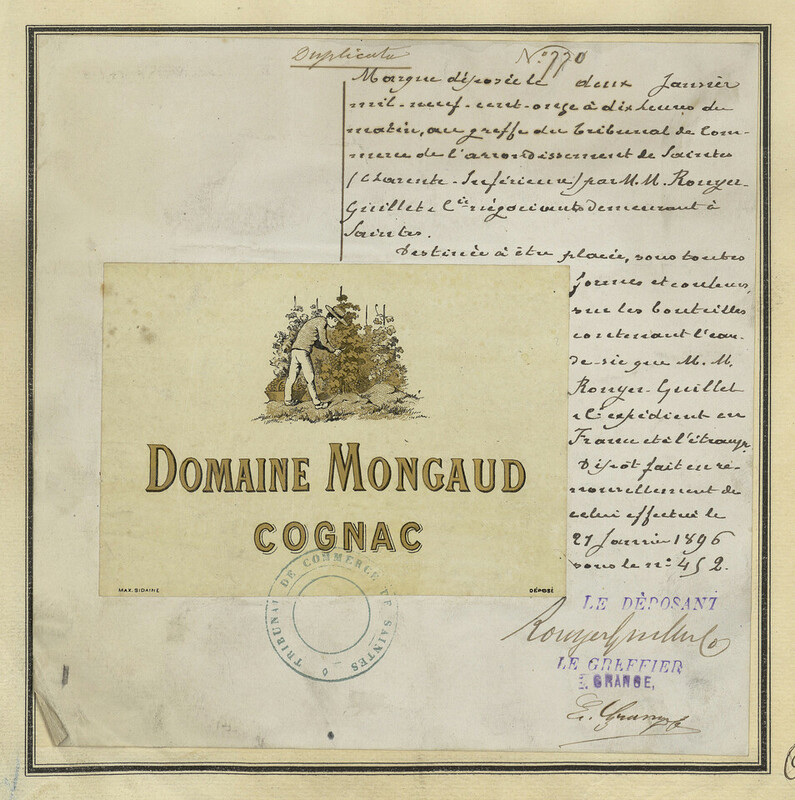 Duplicata
N° 770
Marque déposée le deux Janvier
mil-neuf-cent-onze à dix heures du
matin, au greffe du Tribunal de Com-
merce de l'arrondissement de Saintes
(Charente-Inférieure) par M.M. Rouyer-
Guillet & Cie négociants demeurant à
Saintes.
Destinée à être placée, sous toutes
formes et couleurs,
sur les bouteilles
contenant l'eau-
de-vie que M.M.
Rouyer-Guillet
& Cie expédient en
France et à l'étranger.
Dépôt fait en re-
nouvellement de
celui effectué le
27 Janvier 1896
sous le n° 452.
DOMAINE MONGAUD
COGNAC
MAX. SIDAINE
DÉPOSÉ
TRIBUNAL DE COMMERCE DE SAINTES
LE DÉPOSANT
Rouyer Guillet & Co
LE GREFFIER
E. GRANGE,
E. Grange